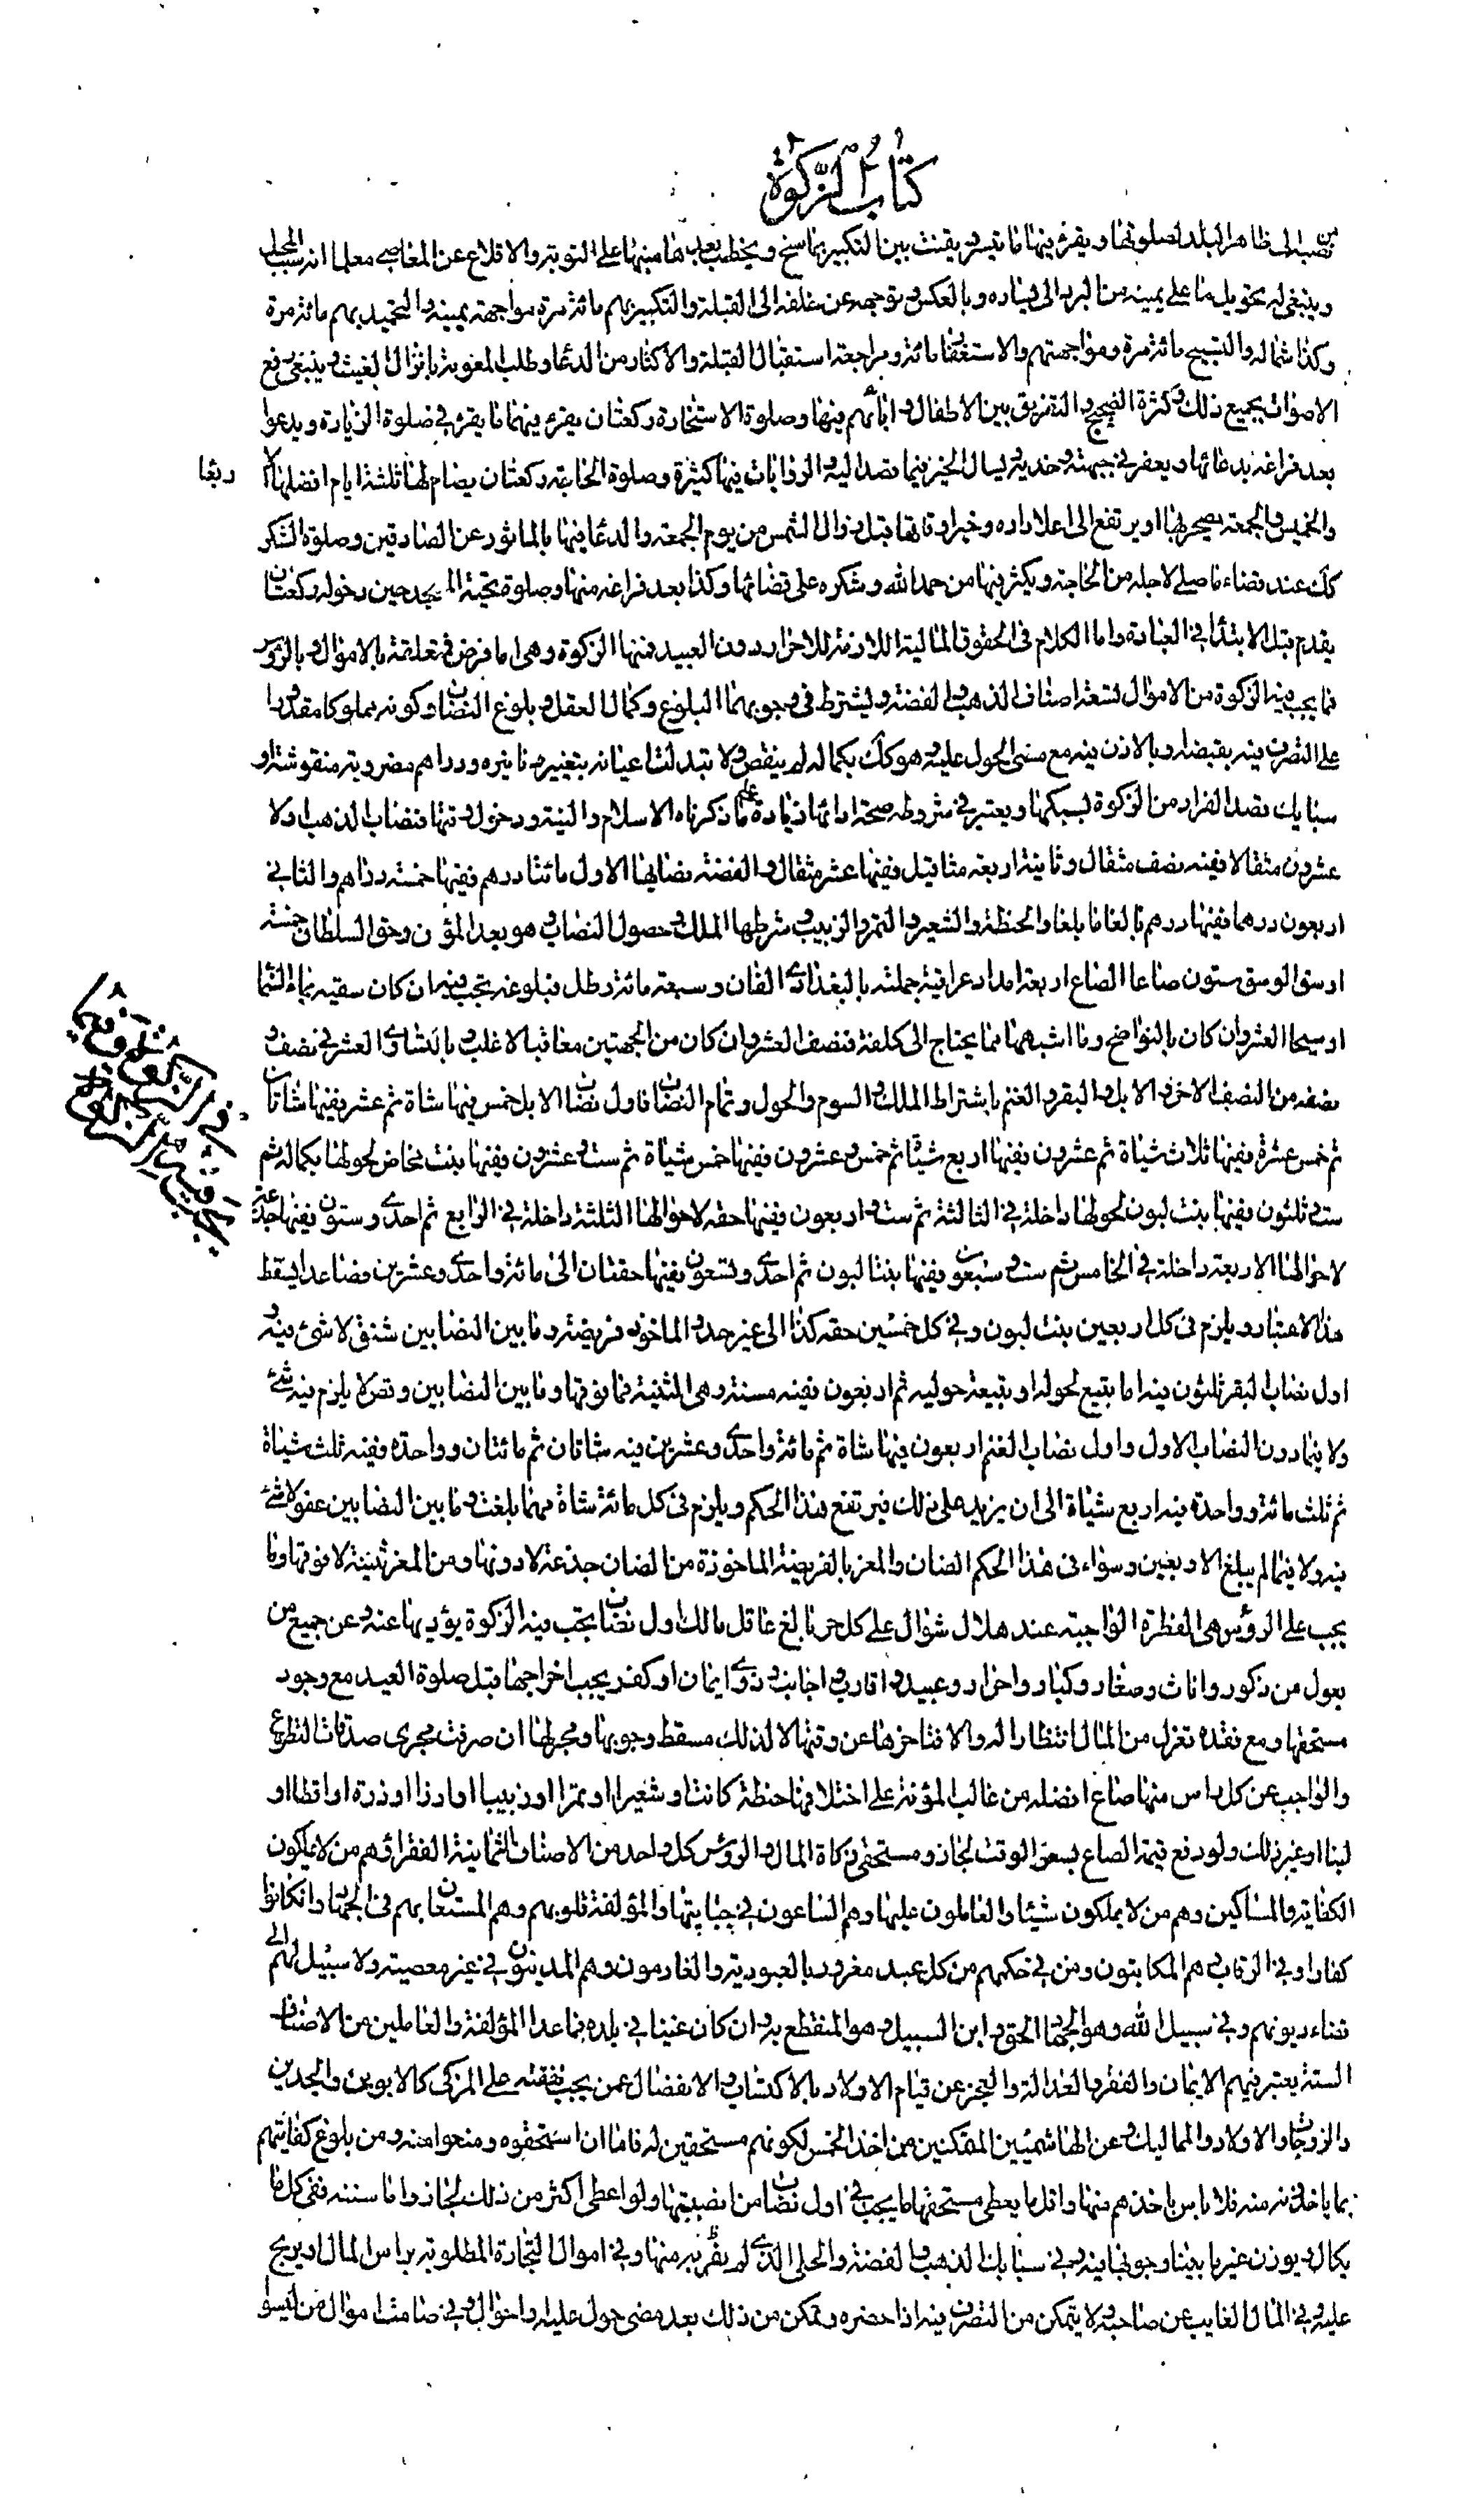 كتاب الزكوة
من نصبه إلى ظاهر البلد لصلوتها ويقرء فيها ما تيسر ويقنت بين التكبير بما سنح ويخطب بعدها منبها على التوبة والاقلاع عن المعاصي معلما انه سبب المحل
وينبغي له تحويل ما على يمينه من البرد الى يساره وبالعكس وتوجهه عن خلفه الى القبلة والتكبير بهم مائة مرة مواجهة يمينه والتحميد بهم مائة مرة
وكذا شماله والتسبيح مائة مرة ومواجهتهم والاستغفار مائة ومراجعة استقبال القبلة والاكثار من الدعا وطلب المعونة بانزال الغيث وينبغي رفع
الاصوات بجميع ذلك وكثرة الضجيج والتفريق بين الاطفال وابائهم فيها وصلوة الاستخارة ركعتان يقرء فيهما ما يقرء في صلوة الزيارة ويدعوا
بعد فراغه بدعائها ويعفر في جبهته وخديه ويسال الخير فيما قصد اليه والروايات فيها كثيرة وصلوة الحاجة ركعتان يصام لها ثلثة ايام افضلها الا
ربعا
والخميس والجمعة يصحر لها او يرتفع الى اعلا داره وخير اوقاتها قبل زوال الشمس من يوم الجمعة والدعا فيها بالماثور عن الصادقين وصلوة الشكر
كك عند قضاء ما صلى لاجله من الحاجة ويكثر فيها من حمد الله وشكره على قضائها وكذا بعد فراغه منها وصلوة تحية المسجد حين دخوله ركعتان
يقدم قبل الابتدا في العبادة واما الكلام في الحقوق المالية اللازمة للاحرار دون العبيد فمنها الزكوة وهي اما فرض فمتعلقة بالاموال وبالرؤس
فما يجب فيه الزكوة من الاموال تسعة اصناف الذهب والفضة ويشترط في وجوبهما البلوغ وكمال العقل وبلوغ النصاب وكونه مملوكا مقدورا
على التصرف فيه بقبضه وبالاذن فيه مع مضى الحول عليه وهو كك بكماله لم ينقص ولا تبدلت اعيانه بتغيير دنانيره ودراهم مضروبة منقوشة او
سبايك قصد الفرار من الزكوة بسبكها ويعتبر في شروط صحة ادائها زيادة على ما ذكرناه الاسلام والنية ودخول وقتها فنصاب الذهب اولا
عشرون مثقالا ففيه نصف مثقال وثانية اربعة مثاقيل ففيها عشر مثقال والفضة نصابها الاول مائتا درهم ففيها خمسة دراهم والثاني
اربعون درهما ففيها درهم بالغا ما بلغا والحنطة والشعير والتمر والزبيب وشرطها الملك وحصول النصاب وهو بعد المؤن وحق السلطان خمسة
اوسق الوسق ستون صاعا الصاع اربعة امداد عراقية جملته بالبغدادي الفان وسبعة مائة رطل فبلوغه تجب فيه ان كان سقيه بماء السما
او سيحا العشر وان كان بالنواضح وما اشبهها مما يحتاج الى كلفة فنصف العشر وان كان من الجهتين معا فبالاغلب وبالتساوي العشر في نصف و
نصفه من النصف الاخر والابل والبقر والغنم باشتراط الملك والسوم والحول وتمام النصاب فاول نصاب الابل خمس فيها شاة ثم عشر ففيها شاتان
ثم خمس عشرة ففيها ثلاث شياة ثم عشرون ففيها اربع شياة ثم خمس وعشرون ففيها خمس شياة ثم ست وعشرون ففيها بنت مخاض لحولها بكماله ثم
ست وثلثون ففيها بنت لبون لحولها داخلة في الثالثة ثم ست واربعون ففيها حقه لاحوالها الثلثة داخلة في الرابع ثم احدى وستون ففيها جذعة
لاحوالها الاربعة داخلة في الخامس ثم ست وسبعون ففيها بنتا لبون ثم احدى وتسعون ففيها حقتان الى مائة واحدى وعشرين فصاعدا يسقط
هذا الاعتبار ويلزم في كل اربعين بنت لبون وفي كل خمسين حقه كذا الى غير حد والماخوذ فريضة وما بين النصابين شنق لا شئ فيه و
اول نصاب البقر ثلثون فيه اما تبيع لحوله او تبيعة حوليه ثم اربعون ففيه مسنة وهي الثنية فما فوقها وما بين النصابين وقص لا يلزم فيه شئ
ولا فيما دون النصاب الاول واول نصاب الغنم اربعون فيها شاة ثم مائة واحدى وعشرين فيه شاتان ثم مائتان وواحدة ففيه ثلث شياة
ثم ثلث مائة وواحدة فيه اربع شياة الى ان يزيد على ذلك فيرتفع هذا الحكم ويلزم في كل مائة شاة مهما بلغت وما بين النصابين عفو لا شئ
فيه ولا فيما لم يبلغ الاربعين وسواء في هذا الحكم الضان والمعز بالفريضة الماخوذة من الضان جذعة لا دونها ومن المعز ثنية لا فوقها وما
يجب على الرؤس هي الفطرة الواجبة عند هلال شوال على كل حر بالغ عاقل مالك اول نصاب تجب فيه الزكوة يؤديها عنه وعن جميع من
يعول من ذكور واناث وصغار وكبار واحرار وعبيد واقارب واجانب وذي ايمان او كفر يجب اخراجها قبل صلوة العيد مع وجود
مستحقها ومع فقده تعزل من المال انتظارا له والا فتاخرها عن وقتها لا لذلك مسقط وجوبها ومجر لها ان صرفت مجرى صدقات التطوع
والواجب عن كل راس منها صاع افضله من غالب المؤنة على اختلافها حنطة كانت او شعيرا او تمرا او زبيبا او ارزا او ذرة او اقطا او
لبنا او غير ذلك ولو دفع قيمة الصاع بسعر الوقت لجاز ومستحقي زكاة المال والرؤس كل واحد من الاصناف الثمانية الفقراء وهم من لا يملكون
الكفاية والمساكين وهم من لا يملكون شيئا والعاملون عليها وهم الساعون في جبايتها والمؤلفة قلوبهم وهم المستعان بهم في الجهاد وان كانوا
كفارا وفي الرقاب هم المكاتبون ومن في حكمهم من كل عبد مغرور بالعبودية والغارمون وهم المدينون في غير معصية ولا سبيل لهم الى
قضاء ديونهم وفي سبيل الله وهو الجهاد الحق وابن السبيل وهو المنقطع به وان كان غنيا في بلده فما عدا المؤلفة والعاملين من الاصناف
الستة يعتبر فيهم الايمان والفقر والعدالة والعجز عن قيام الاولاد بالاكتساب والانفصال عمن يجب نفقته على المزكى كالابوين والجدين
والزوجات والاولاد والمماليك وعن الهاشميين المتمكنين من اخذ الخمس لكونهم مستحقين له فاما ان استحقوه ومنعوا منه ومن بلوغ كفايتهم
بما ياخذونه منه فلا باس باخذهم منها واقل ما يعطى مستحقها ما يجب في اول نصاب من انصبتها ولو اعطى اكثر من ذلك لجاز واما سننه ففي كل ما
يكال ويوزن غير ما بينا وجوبها فيه وفي سبايك الذهب والفضة والحلي الذي لم يفر به منها وفي اموال التجارة المطلوبة براس المال او بربح
عليه وفي المال الغايب عن صاحبه ولا يتمكن من التصرف فيه اذا حضره وتمكن من ذلك بعد مضى حول عليه واحوال وفي صامت اموال من ليسوا